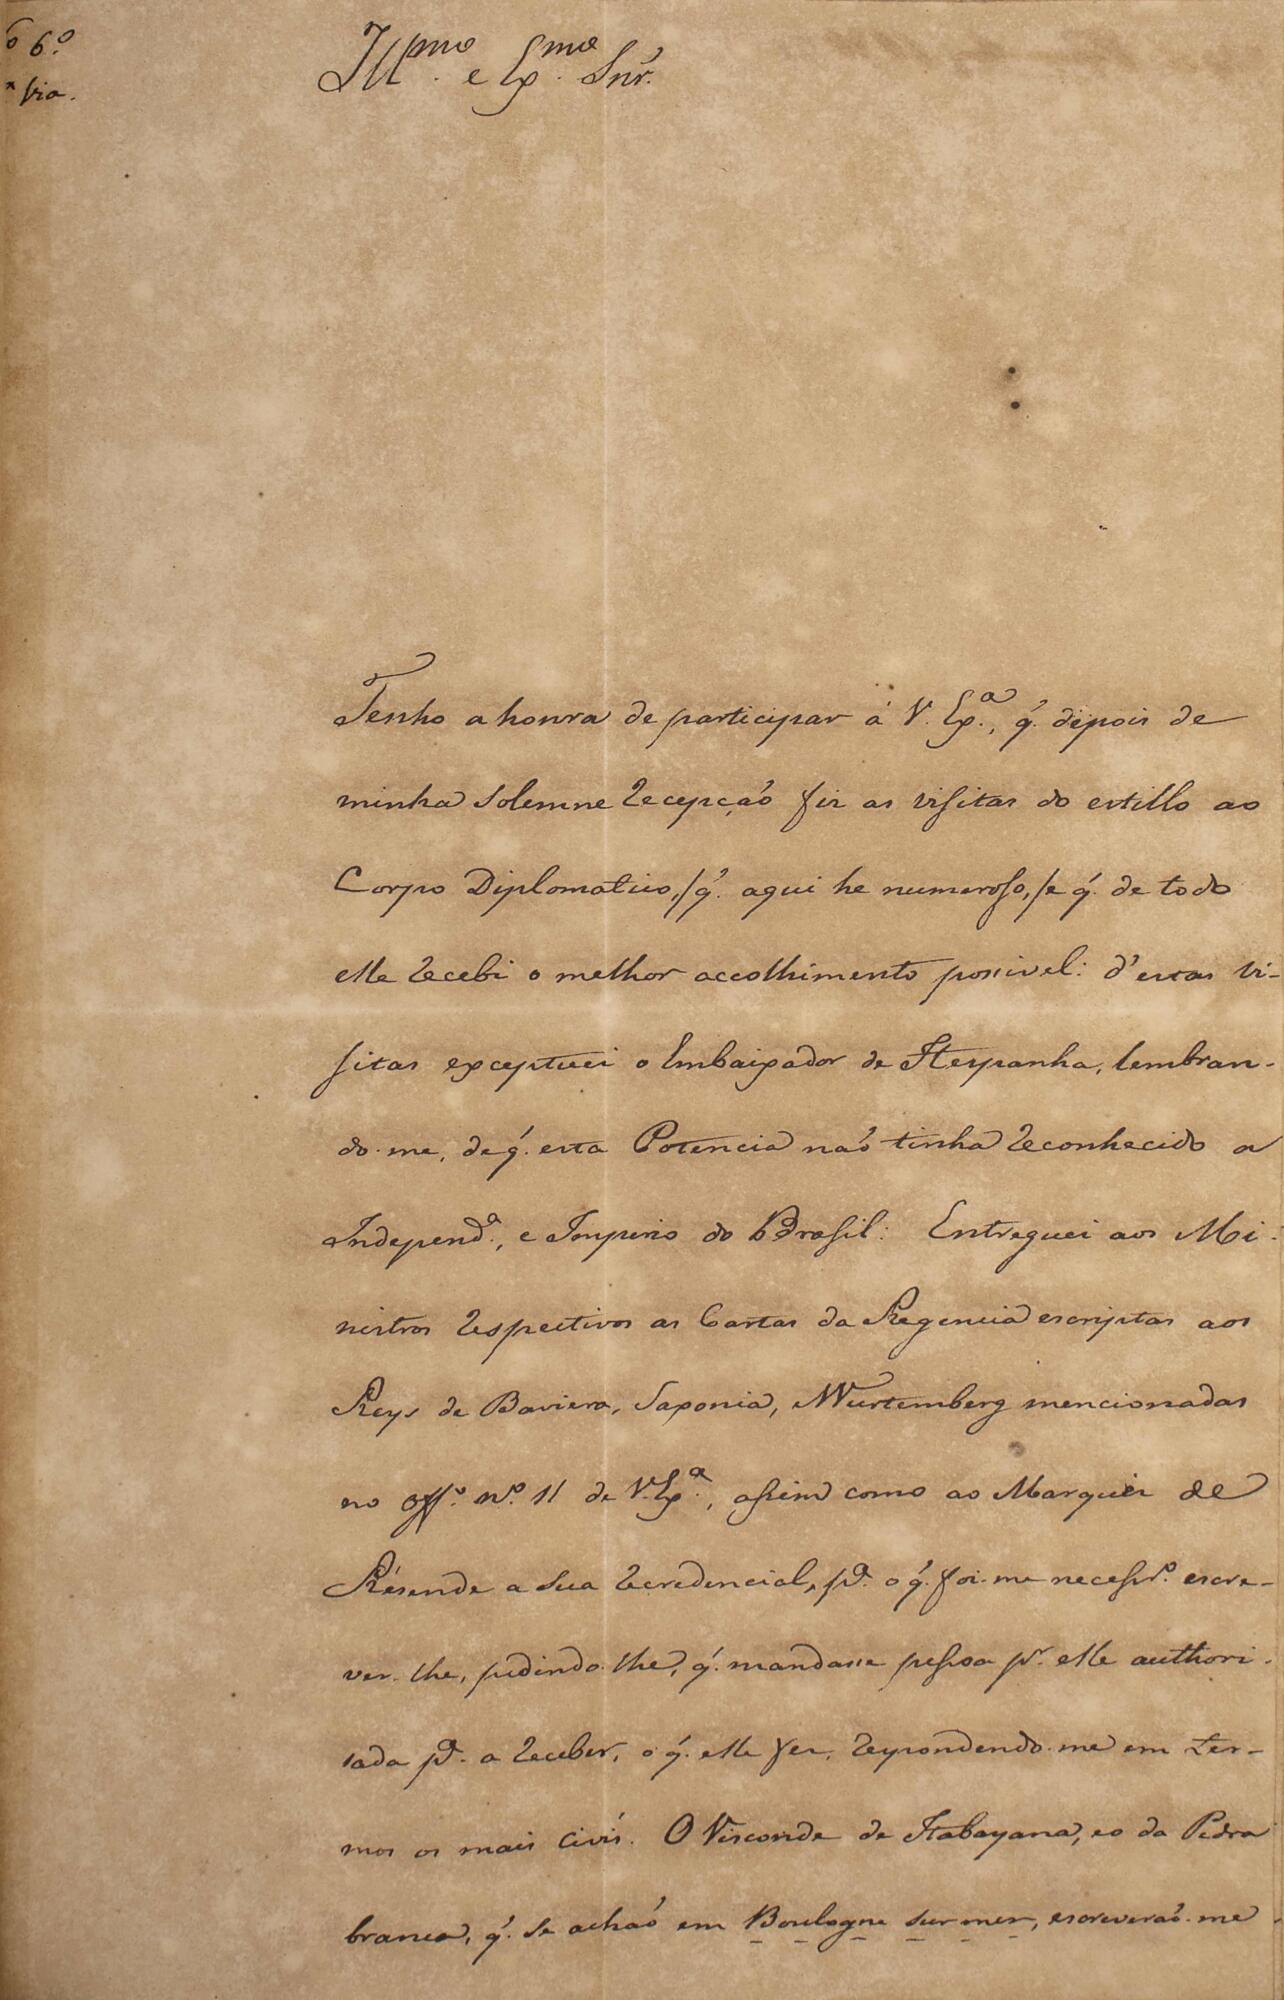 6.º
via.
Ill.mo e Ex.mo Snr.
Tenho a honra de participar á V. Ex.ª, q. depois de
minha solemne recepçaõ fiz as visitas do estillo ao
Corpo Diplomatico, /q. aqui he numeroso,/ e q. de todo
elle recebi o melhor accolhimento possivel: d'estas vi-
sitas exceptuei o Embaixador de Hespanha, lembran-
do-me, de q. esta Potencia naõ tinha reconhecido a
Independ.ª, e Imperio do Brasil: Entreguei aos Mi-
nistros respectivos as Cartas da Regencia escriptas aos
Reys de Baviera, Saxonia, Wurtemberg mencionadas
no off.º n.º 11 de V. Ex.ª, assim como ao Marquez de
Résende a sua recredencial, p.ª o q. foi-me necessr.º escre-
ver-lhe, pedindo-lhe, q. mandasse pessoa p.r elle authori-
sada p.ª a receber, o q. elle fez, respondendo-me em ter-
mos os mais civís. O Visconde de Itabayana, e o da Pedra
branca, q. se achaõ em Boulogne sur mer, escreveraõ-me